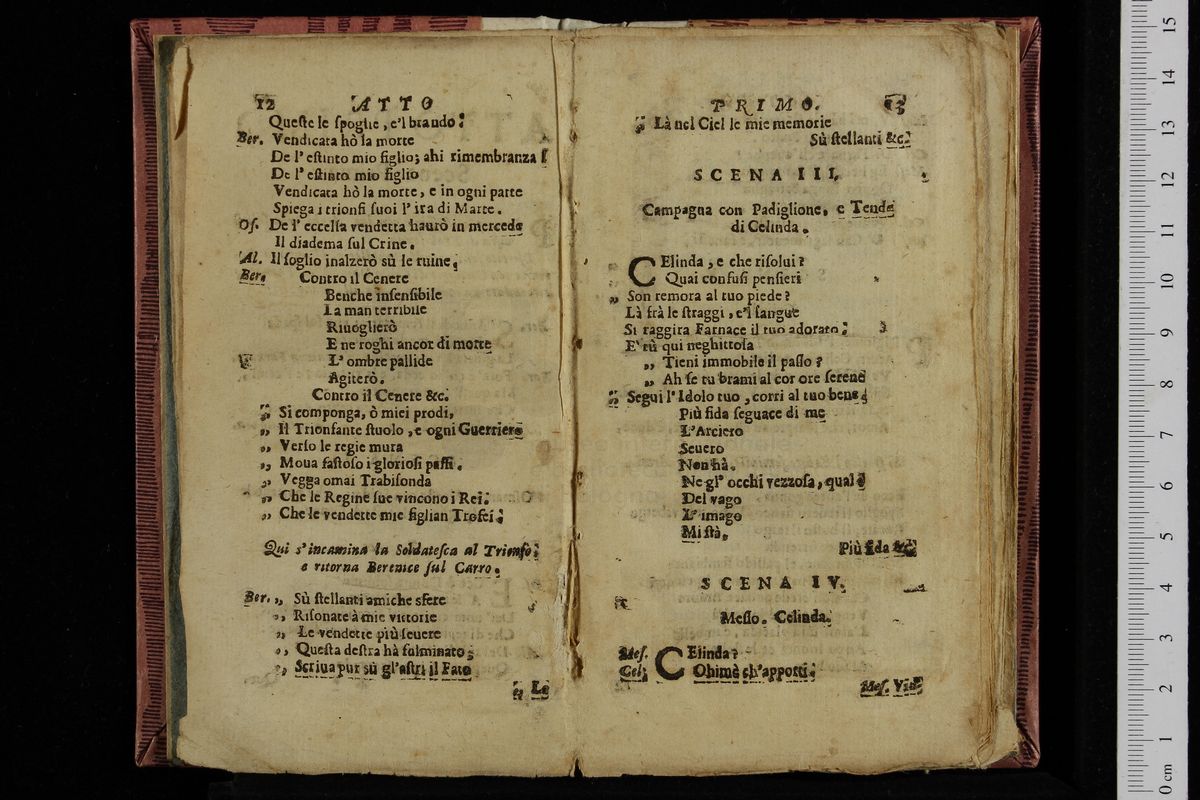 12 ATTO
Queſte le ſpoglie, e'l brando:
Ber. Vendicata hò la morte
De l'eſtinto mio figlio; ahi rimembranza!
De l'eſtinto mio figlio
Vendicata hò la morte, e in ogni parte
Spiega i trionfi ſuoi l'ira di Marte.
Oſ. De l'eccelſa vendetta haurò in mercede
Il diadema ſul Crine.
Al. Il ſoglio inalzerò sù le ruine.
Ber. Contro il Cenere
Benche inſenſibile
La man terribile
Riuoglierò
E ne roghi ancor di morte
L'ombre pallide
Agiterò.
Contro il Cenere &c.
„ Si componga, ò miei prodi,
„ Il Trionfante ſtuolo, e ogni Guerriero
„ Verſo le regie mura
„ Moua faſtoſo i glorioſi paſſi.
„ Vegga omai Trabiſonda
„ Che le Regine ſue vincono i Rei.
„ Che le vendette mie figlian Trofei.
Qui s'incamina la Soldateſca al Trionfo;
e ritorna Berenice ſul Carro.
Ber. „ Sù ſtellanti amiche sfere
„ Riſonate à mie vittorie
„ Le vendette più ſeuere
„ Queſta deſtra hà fulminato;
„ Scriua pur sù gl'aſtri il Fato
„ Le
PRIMO. 13
„ Là nel Ciel le mie memorie
Sù ſtellanti &c.
SCENA III.
Campagna con Padiglione, e Tende
di Celinda.
CElinda, e che riſolui?
Quai confuſi penſieri
„ Son remora al tuo piede?
Là frà le ſtraggi, e'l ſangue
Si raggira Farnace il tuo adorato:
E tù qui neghittoſa
„ Tieni immobile il paſſo?
„ Ah ſe tu brami al cor ore ſerene
„ Segui l'Idolo tuo, corri al tuo bene.
Più fida ſeguace di me
L'Arciero
Seuero
Non hà.
Ne gl'occhi vezzoſa, qual è
Del vago
L'imago
Mi ſtà.
Più fida &c.
SCENA IV.
Meſſo. Celinda.
Meſ. CElinda?
Cel. Ohimè ch'apporti.
Meſ. Vid